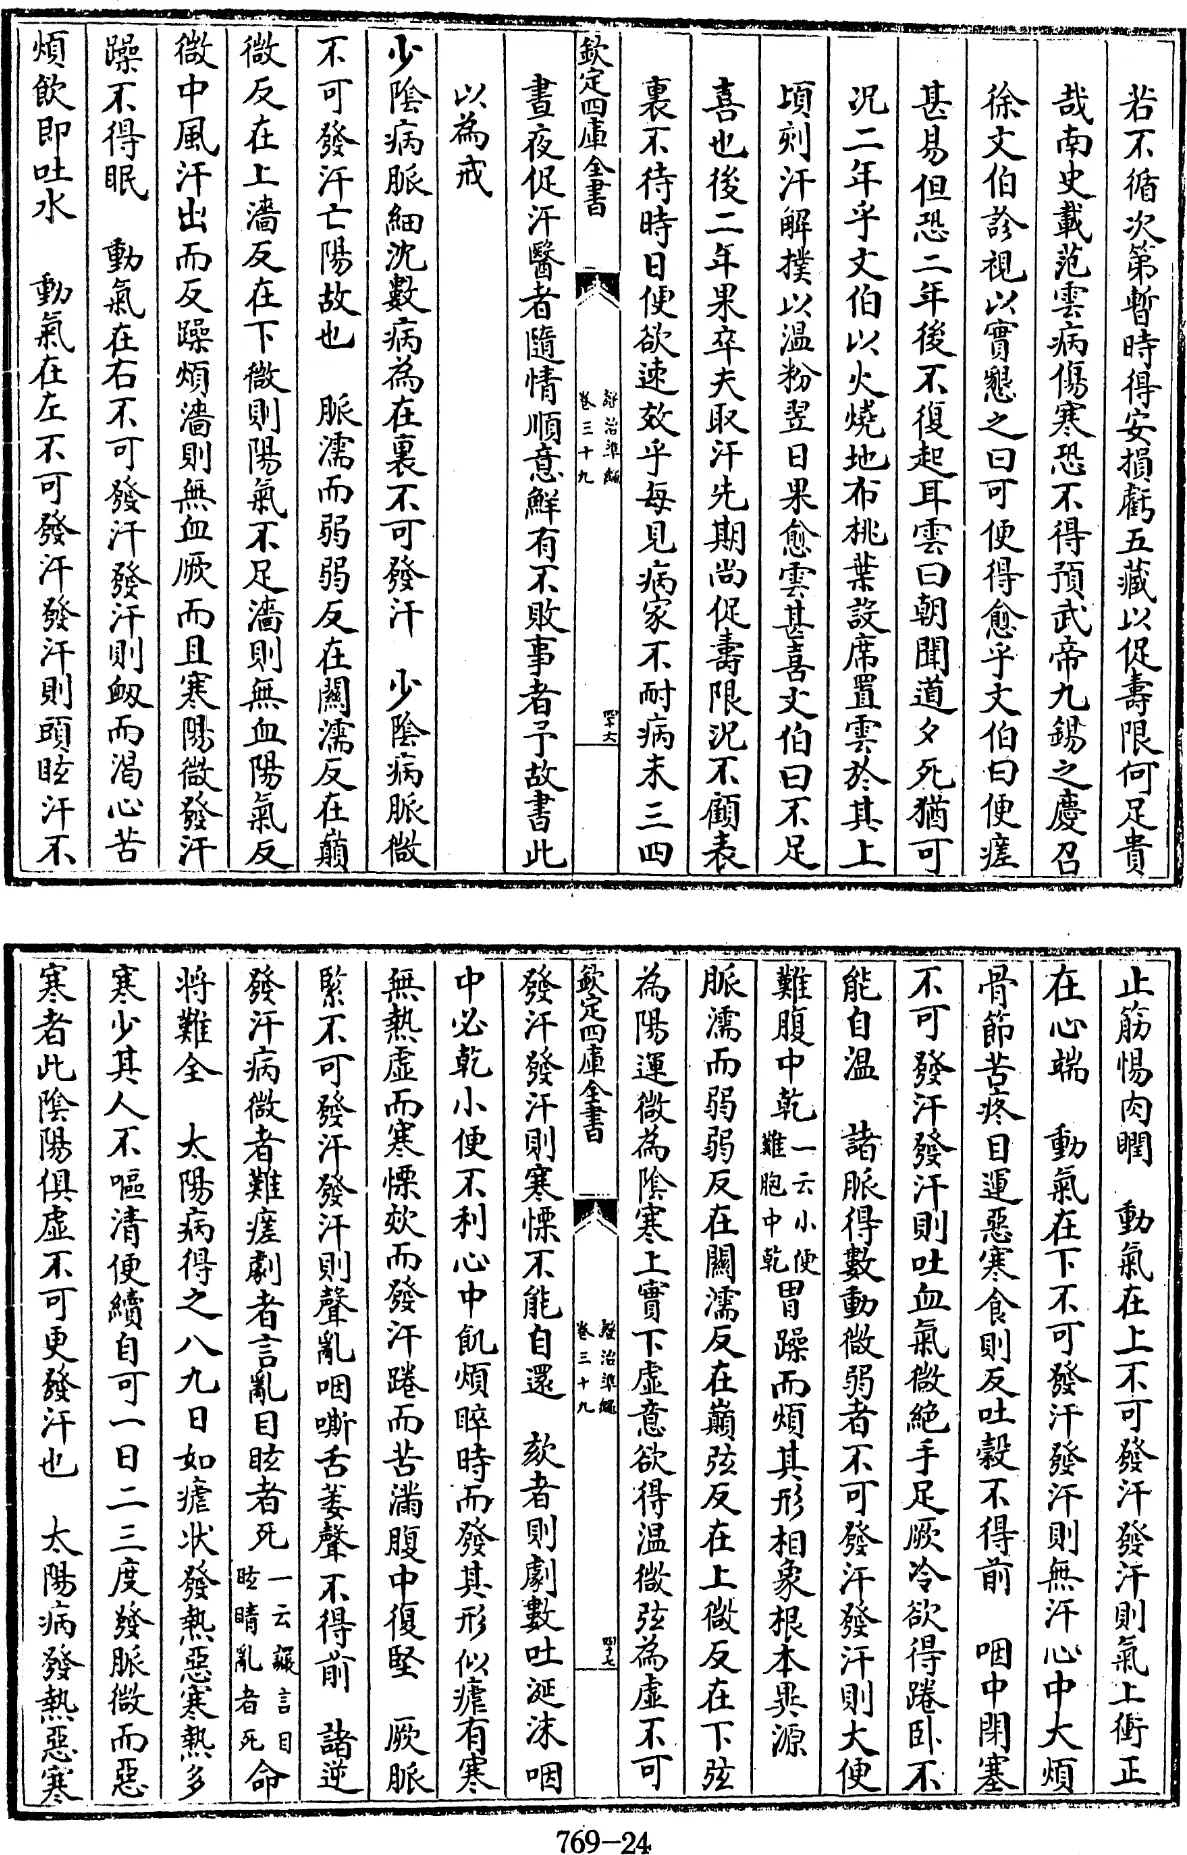 若不循次第暫時得安損虧五藏以促壽限何足貴
哉南史載范雲病傷寒恐不得預武帝九錫之慶召
徐文伯診視以實懇之曰可便得愈乎文伯曰便瘥
甚易但恐二年後不復起耳雲曰朝聞道夕死猶可
况二年乎文伯以火燒地布桃葉設席置雲於其上
頃刻汗解撲以温粉翌日果愈雲甚喜文伯曰不足
喜也後二年果卒夫取汗先期尚促壽限况不顧表
裏不待時日便欲速效乎每見病家不耐病未三四
欽定四庫全書
證治準繩
卷三十九
四十六
晝夜促汗醫者隨情順意鮮有不敗事者予故書此
以為戒
少陰病脈細沈數病為在裏不可發汗 少陰病脈微
不可發汗亡陽故也 脈濡而弱弱反在關濡反在巔
微反在上濇反在下微則陽氣不足濇則無血陽氣反
微中風汗出而反躁煩濇則無血厥而且寒陽微發汗
躁不得眠 動氣在右不可發汗發汗則衂而渴心苦
煩飲即吐水 動氣在左不可發汗發汗則頭眩汗不
止筋惕肉瞤 動氣在上不可發汗發汗則氣上衝正
在心端 動氣在下不可發汗發汗則無汗心中大煩
骨節苦疼目運惡寒食則反吐穀不得前 咽中閉塞
不可發汗發汗則吐血氣微絶手足厥冷欲得踡卧不
能自温 諸脈得數動微弱者不可發汗發汗則大便
難腹中乾一云小便難胞中乾胃躁而煩其形相象根本異源
脈濡而弱弱反在關濡反在巔弦反在上微反在下弦
為陽運微為陰寒上實下虚意欲得温微弦為虚不可
欽定四庫全書
證治準繩
卷三十九
四十七
發汗發汗則寒慄不能自還 欬者則劇數吐涎沫咽
中必乾小便不利心中飢煩晬時而發其形似瘧有寒
無熱虚而寒慄欬而發汗踡而苦滿腹中復堅 厥脈
緊不可發汗發汗則聲亂咽嘶舌萎聲不得前 諸逆
發汗病微者難瘥劇者言亂目眩者死一云讝言目眩睛亂者死命
将難全 太陽病得之八九日如瘧状發熱惡寒熱多
寒少其人不嘔清便續自可一日二三度發脈微而惡
寒者此陰陽俱虚不可更發汗也 太陽病發熱惡寒
769-24